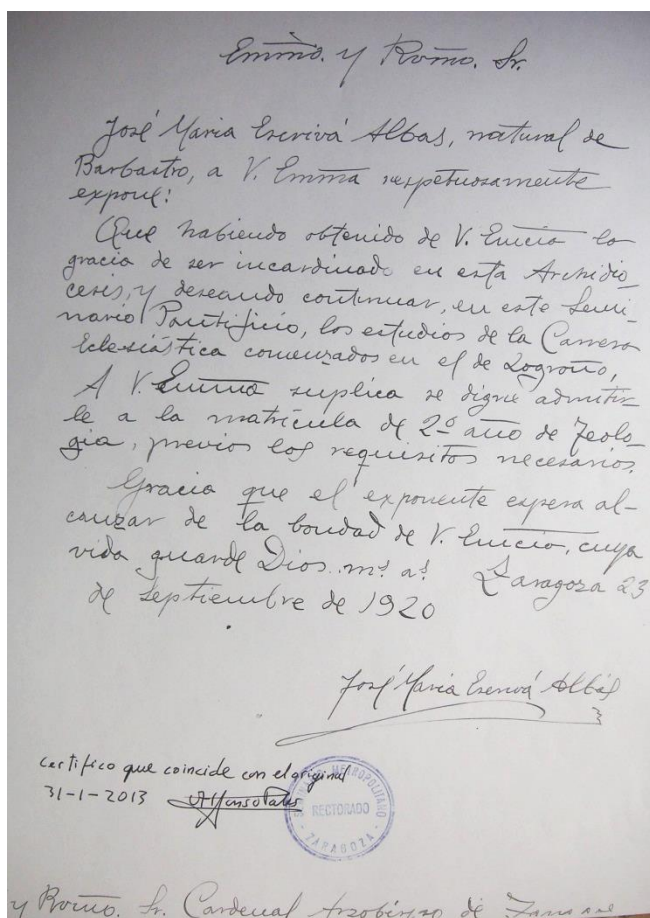 Emmo. y Rvmo. Sr.
José Maria Escrivá Albas, natural de
Barbastro, a V. Emma respetuosamente
expone:
Que habiendo obtenido de V. Emcia la
gracia de ser incardinado en esta Archidio-
cesis, y deseando continuar, en este Semi-
nario Pontificio, los estudios de la Carrera
Eclesiástica comenzados en el de Logroño,
A V. Emma suplica se digne admitir-
le a la matrícula de 2º año de Teolo-
gia, previos los requisitos necesarios.
Gracia que el exponente espera al-
canzar de la bondad de V. Emcia, cuya
vida guarde Dios ms. as. Zaragoza 23
de septiembre de 1920
José Maria Escrivá Albás
certifico que coincide con el original
31-1-2013
SEMINARIO METROPOLITANO
RECTORADO
ZARAGOZA
y Rvmo. Sr. Cardenal Arzobispo de